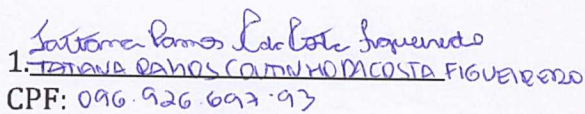 Tatiana Ramos C da Costa Figueiredo
1. TATIANA RAMOS COUTINHO DA COSTA FIGUEIREDO
CPF: 096.926.697-93